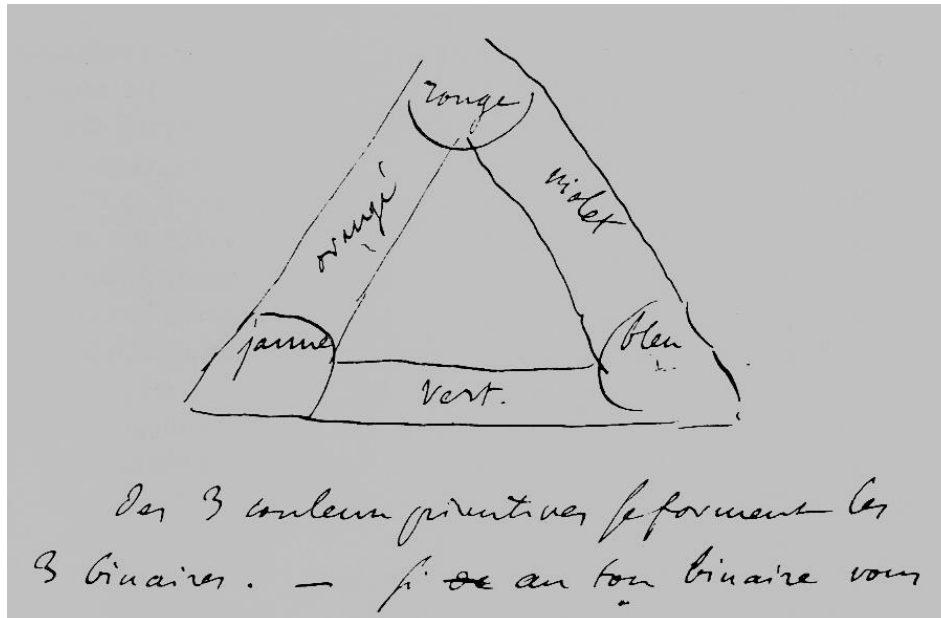 rouge
orangé
violet
jaune
bleu
Vert.
Des 3 couleurs primitives se forment les
3 binaires. — si de au ton binaire vous